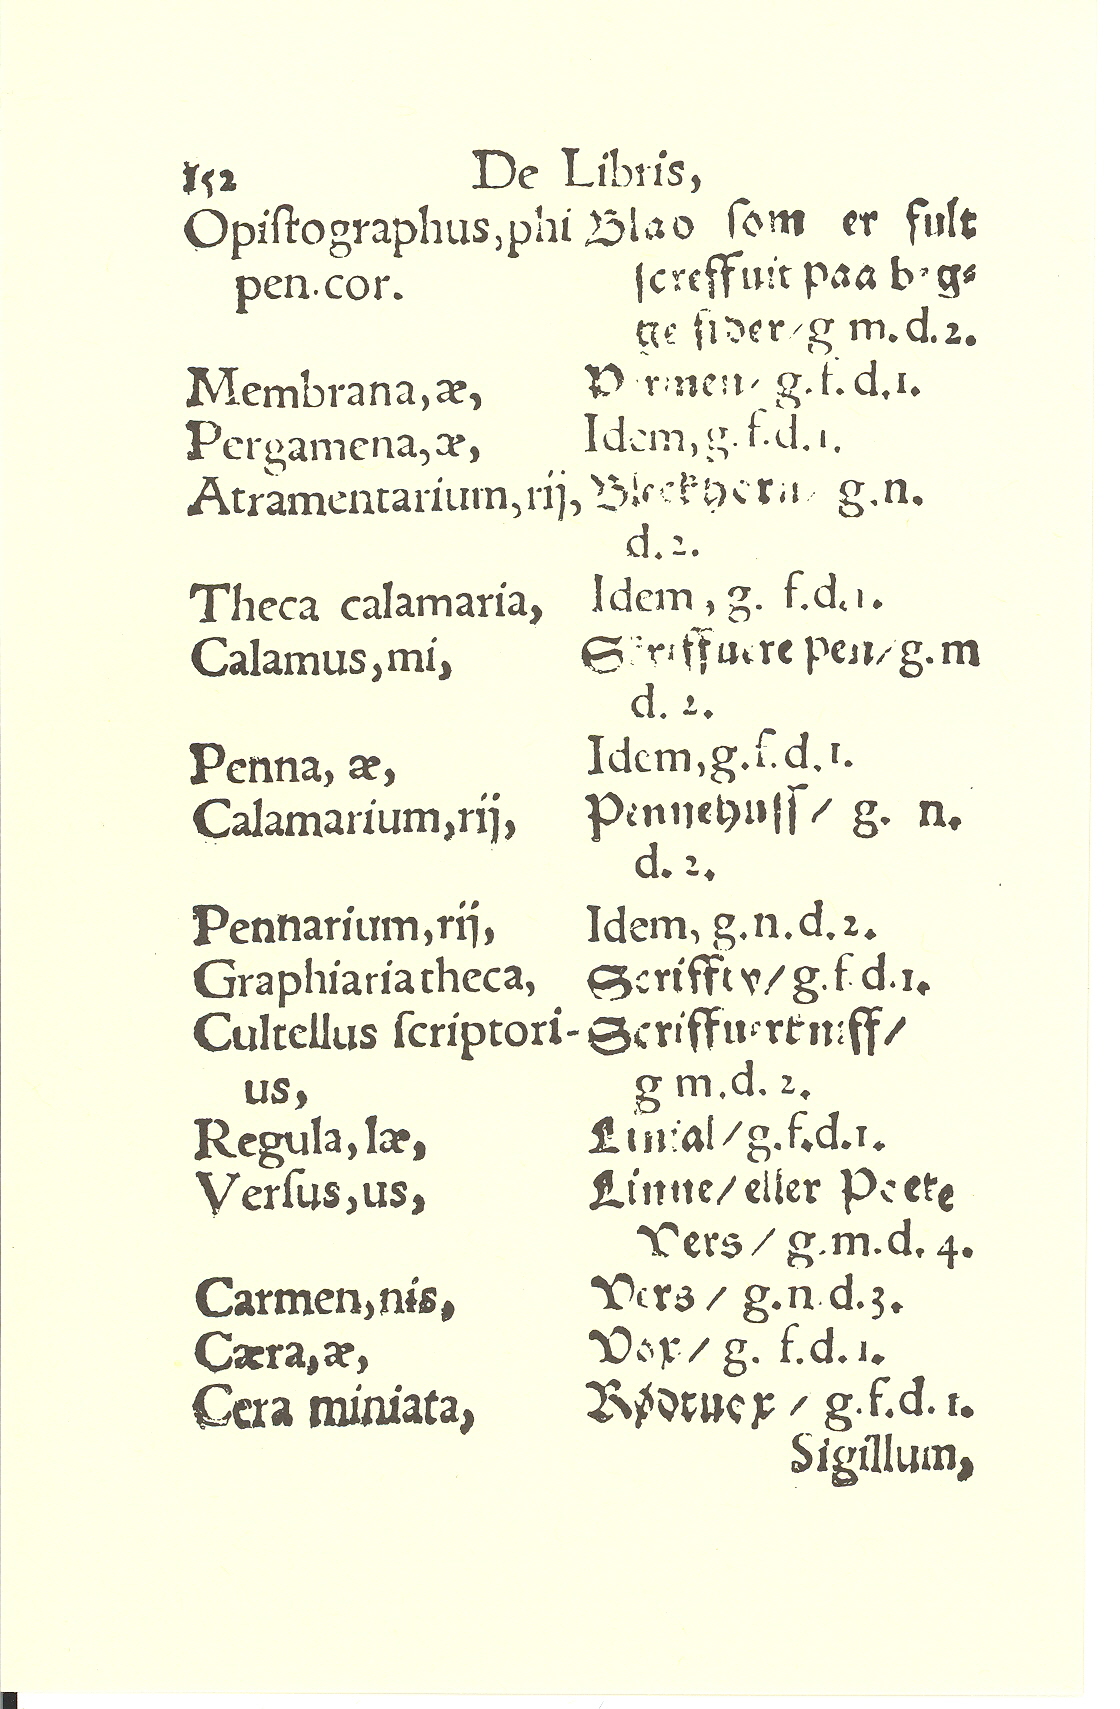 152 De Libris,
Opiſtographus, phi Blad ſom er fult
pen. cor. ſcreffuit paa beg⸗
ge ſider / g m. d. 2.
Membrana, æ, Permen / g. f. d. 1.
Pergamena, æ, Idem, g. f. d. 1.
Atramentarium, rij, Bleckhorn / g. n.
d. 2.
Theca calamaria, Idem, g. f. d. 1.
Calamus, mi, Scriffuere pen / g. m
d. 2.
Penna, æ, Idem, g. f. d. 1.
Calamarium, rij, Pennehuſſ / g. n.
d. 2.
Pennarium, rij, Idem, g. n. d. 2.
Graphiaria theca, g. f. d. 1.
Cultellus ſcriptori- Scriffuerkniff /
us, g m. d. 2.
Regula, læ, Linial / g. f. d. 1.
Verſus, us, Linne / eller Poete
Vers / g. m. d. 4.
Carmen, nis, Vers / g. n. d. 3.
Cæra, æ, Vox / g. f. d. 1.
Cera miniata, Rødtuox / g. f. d. 1.
Sigillum,